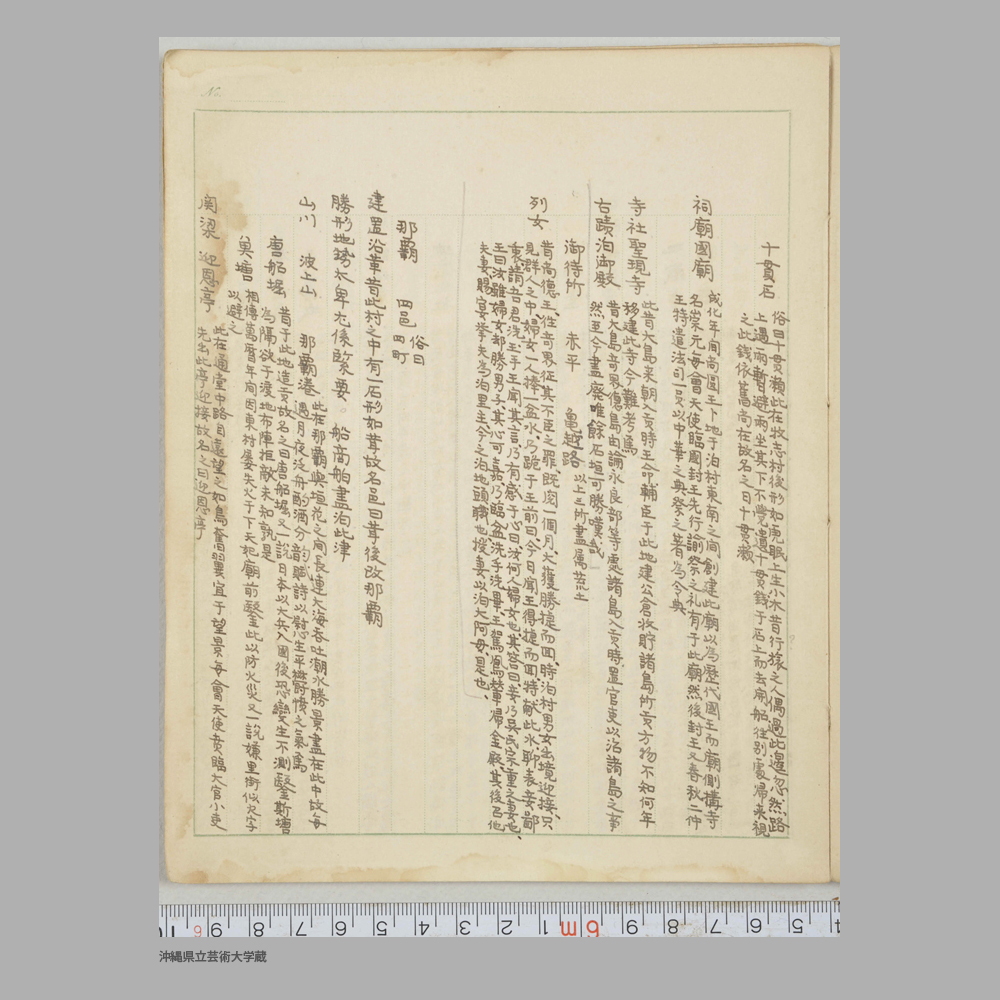 十貫石
俗曰十貫瀬此在牧志村後形如虎眠上生小木昔行旅之人偶過此邊忽然路
上遇雨暫避雨坐其下不覺遺十貫錢于石上而去開船往別處歸来視
之此錢依舊尚在故名之曰十貫瀬
祠廟國廟
成化年间尚圓王卜地于泊村東南之间創建此廟以為歴代國王而廟側構寺
名崇元每會天使臨國封王先行諭祭之礼有于此廟然後封王又春秋二仲
王特遣法司一員以中華之典祭之著為令典
寺社聖現寺
此昔大島来朝入貢時王命輔臣于此地建公倉收貯諸島所貢方物不知何年
移建此寺今難考焉
古蹟泊御殿
昔大島奇界德島由論永良部等處諸島入貢時置官吏以治諸島之事
然至今盡廢唯餘石垣可勝嘆哉
御待所 赤平 亀趣路 以上三所盡属荒土
列女
昔尚德王、往奇界征其不臣之罪、既閱一個月、大獲勝捷而回、時泊村男女出境迎接、只
見群人之中婦女一人捧一盆水、乃跪于王前曰、今日聞王得捷而回、特献此水、聊表妾鄙
衷、請吾君洗玉手王聞其言、乃有感于心曰汝何人婦女也其答曰、妾乃呉氏宗重之妻也、
王曰汝雖婦女却勝男子其心可嘉乃臨盆洗手洗畢、王駕鳳輦歸金殿、其後召他
夫妻賜宴挙夫為泊里主今之泊地頭職也授妻以泊大阿母是也、
那覇 四邑 俗曰
四町
建置沿革昔此村之中有一石形如茸故名邑曰茸後改那覇
勝形地勢太卑尤係緊要。船商舶盡泊此津
山川 波上山 那覇港
此在那覇與垣花之间長連大海吞吐潮水勝景盡在此中故每
遇月夜泛舟酌酒分韵賦詩以慰生平欝悛之氣焉
唐船堀
昔于此地造貢故名之曰唐船堀又一説日本以大兵入國後恐變生不測鑿斯塘
為隔欲于渡地布陣拒敵未知孰是
奧塘
相傳萬曆年间因東村屡失火于下天妃廟前鑿此以防火災又一説嫌里街似火字
以避之
関梁 迎恩亭
此在通堂中路自遠望之如鳥奮翼宜于望景每會天使賁臨大官小吏
先出此亭迎接故名之曰迎恩亭
沖縄県立芸術大学蔵